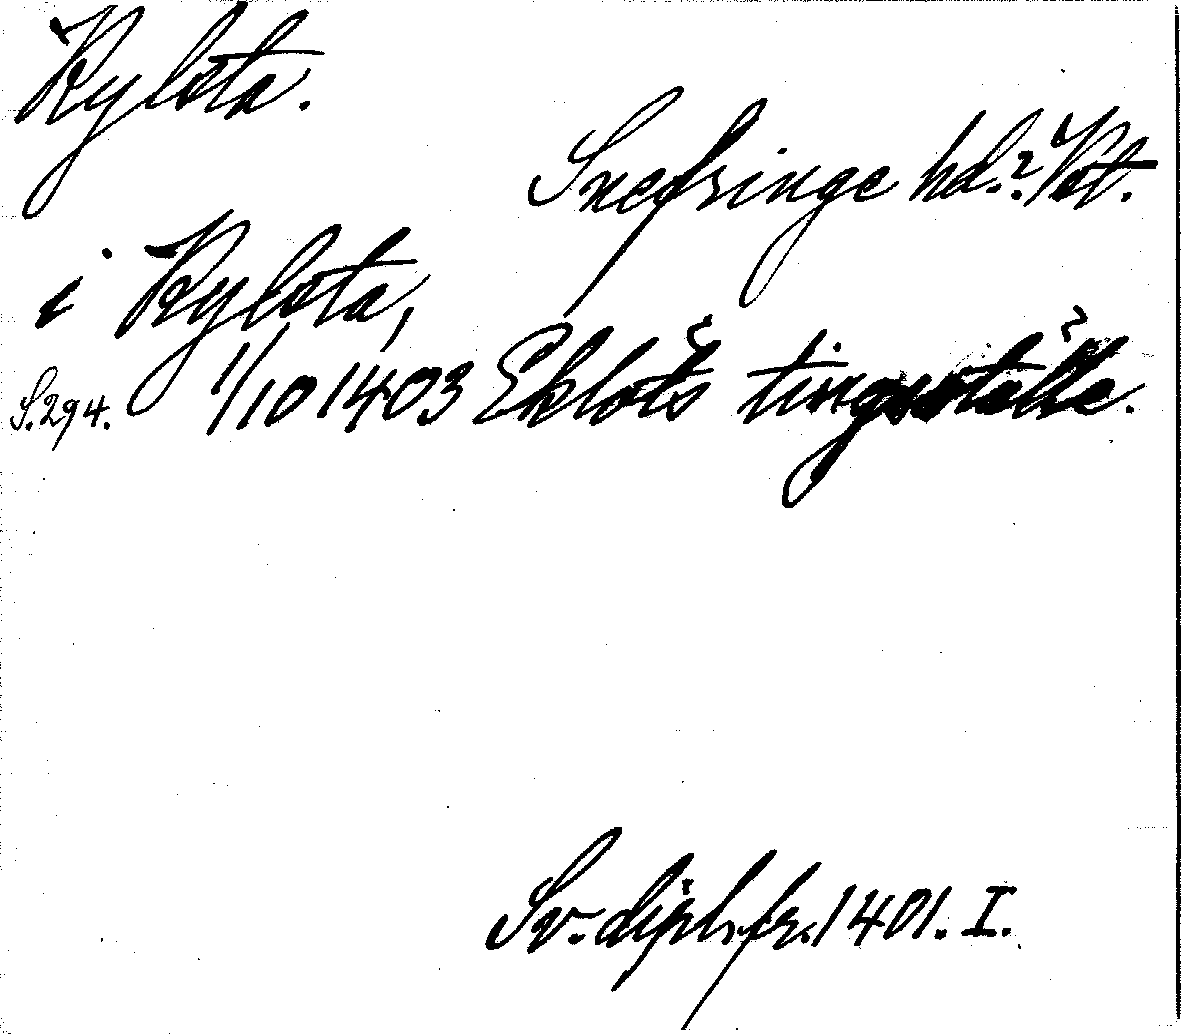 Kylota.
Snefringe hd.? Vst.
i Kylota,
S. 294. 1/10 1403 Eklöts tingställe.
Sv. dipl. fr. 1401. I.